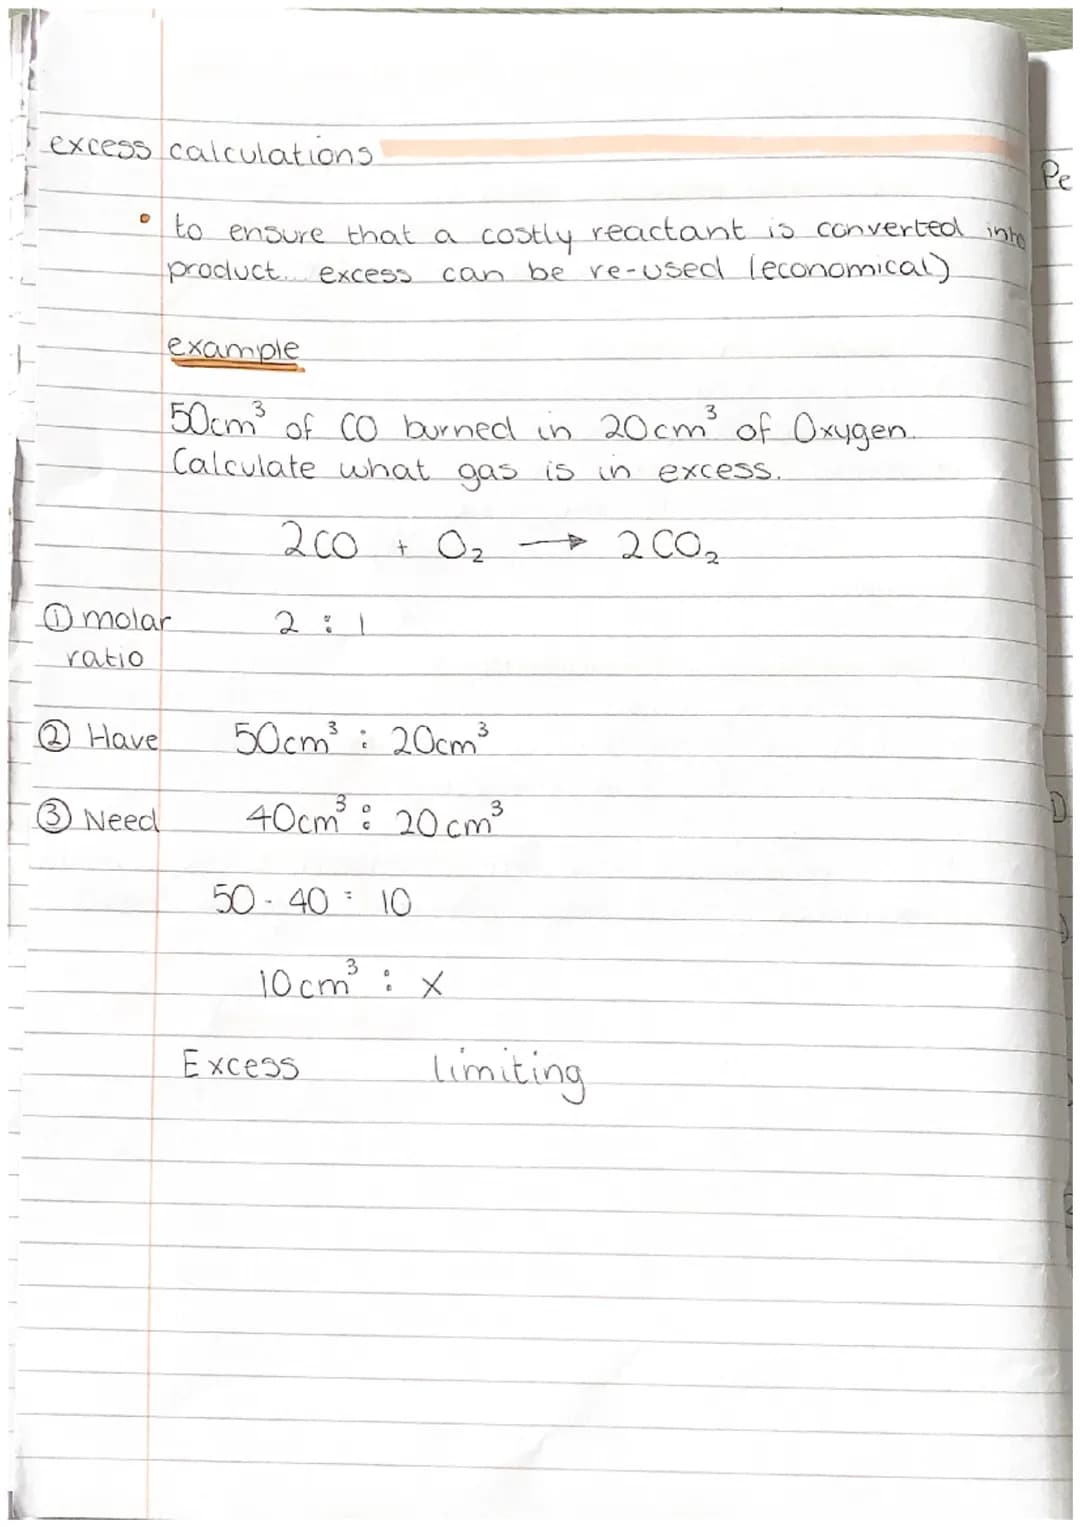 excess calculations
Pe
• to ensure that a costly reactant is converted into
product. excess can be re-used (economical)
example
50cm³ of CO burned in 20cm³ of Oxygen.
Calculate what gas is in excess.
2CO + O₂ → 2CO₂
① molar 2 : 1
ratio
② Have 50cm³ : 20cm³
③ Need 40cm³ : 20cm³
50 - 40 = 10
10cm³ : x
Excess limiting